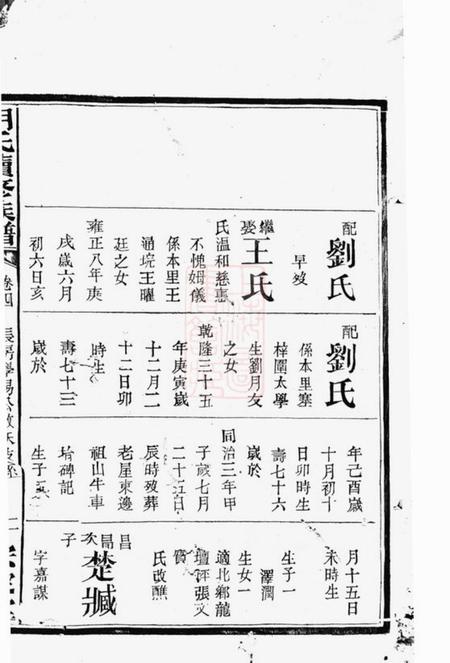 配
劉氏
早歿
繼娶
王氏
氏溫和慈惠
不愧姆儀
係本里王
通垸王曜
廷之女
雍正八年庚
戌歲六月
初六日亥
配
劉氏
係本里塞
梓圍太學
生劉月友
之女
乾隆三十五
年庚寅歲
十二月二
十二日卯
時生
壽七十三
歲於
年己酉歲
十月初十
日卯時生
壽七十六
歲於
同治三年甲
子歲七月
二十五日
辰時歿葬
老屋東邊
祖山牛車
堵碑記
生子五
月十五日
未時生
生子一
澤潤
生女一
適北鄉龍
壇評張文
寶
氏改醮
昌
昌次
子
楚臧
字嘉謀
氏續修族譜
卷四
長房學易公